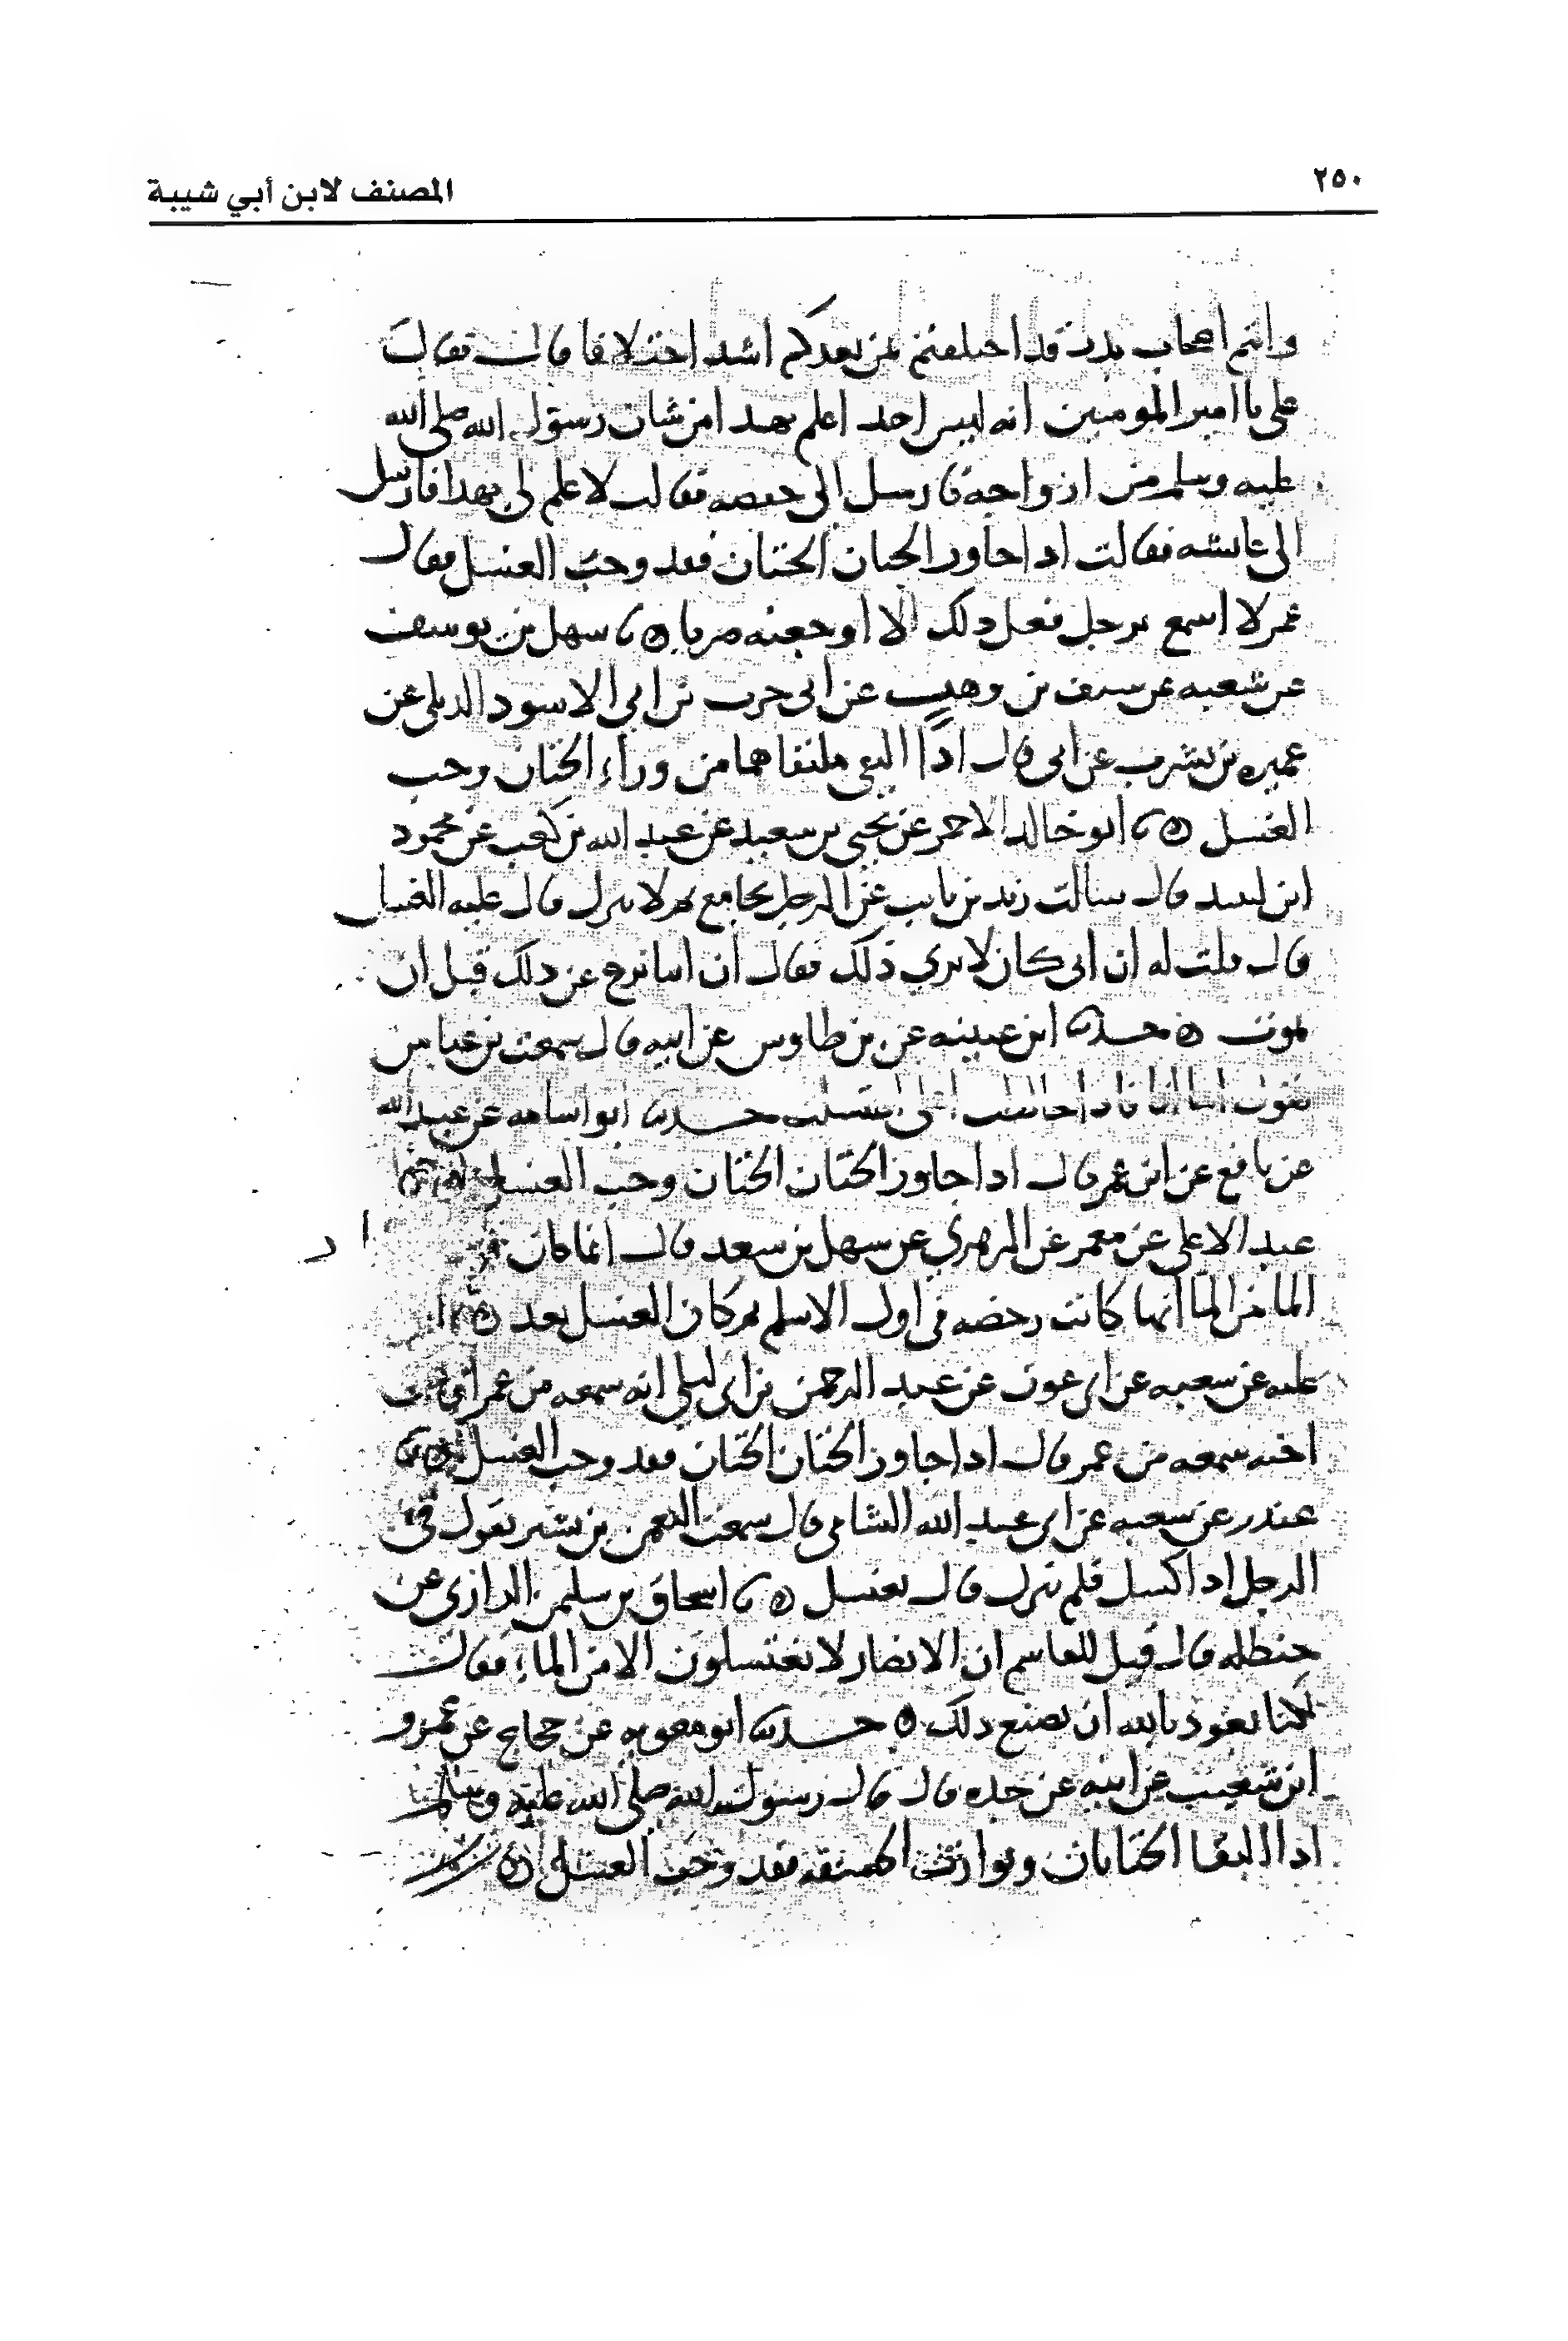 ٢٥٠
المصنف لابن أبي شيبة
وانتم اصحاب بدر قد اختلفتم فمن بعدكم اشد اختلافا قال فقال
علي يا امير المومنين انه ليس احد اعلم بهذا من شان رسول الله صلى الله
عليه وسلم من ازواجه فارسل الى حفصه فقالت لا علم لي بهذا فارسل
الى عائشه فقالت اذا جاوز الختان الختان فقد وجب الغسل فقال
عمر لا اسمع برجل فعل ذلك الا اوجعته ضربا ○ نا سهل بن يوسف
عن شعبه عن سيف بن وهب عن ابي حرب بن ابي الاسود الديلي عن
عميره بن يثرب عن ابي قال اذا التقى ملتقاهما من وراء الختان وجب
الغسل ○ نا ابو خالد الاحمر عن يحيى بن سعيد عن عبد الله بن كعب عن محمود
ابن لبيد قال سالت زيد بن ثابت عن الرجل يجامع ثم لا ينزل قال عليه الغسل
قال قلت له ان ابي كان لا يرى ذلك فقال ان ابيا نزع عن ذلك قبل ان
يموت ○ حدثنا ابن عيينه عن بن طاوس عن ابيه قال سمعت بن عباس
يقول اما انا فاذا خالطت اهلي اغتسلت حدثنا ابو اسامه عن عبيد الله
عن نافع عن ابن عمر قال اذا جاوز الختان الختان وجب الغسل ○ نا
عبد الاعلى عن معمر عن الزهري عن سهل بن سعد قال انما كان
الما من الما انها كانت رخصه في اول الاسلم ثم كان الغسل بعد ○ نا ابن
عليه عن شعبه عن ابي عون عن عبد الرحمن بن ابي ليلى انه سمعه من عمر او من
اخته سمعه من عمر قال اذا جاوز الختان الختان فقد وجب الغسل ○ نا
غندر عن شعبه عن ابي عبد الله الشامي قال سمعت النعمن بن بشير يقول في
الرجل اذا اكسل فلم ينزل قال يغتسل ○ نا اسحاق بن سليمن الرازي عن
حنظله قال قيل للقاسم ان الانصار لا يغتسلون الا من الماء فقال
لكنا نعوذ بالله ان نصنع ذلك ○ حدثنا ابو معويه عن حجاج عن عمرو
ابن شعيب عن ابيه عن جده قال قال رسول الله صلى الله عليه وسلم
اذا التقا الختانان وتوارت الحشفه فقد وجب الغسل ○